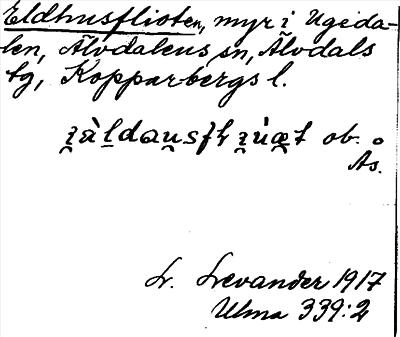 Eldhusflioten, myr i Ugeda-
len, Älvdalens sn, Älvdals
tg, Kopparbergs l.
ob.
Ås.
L. Levander 1917
Ulma 339:2